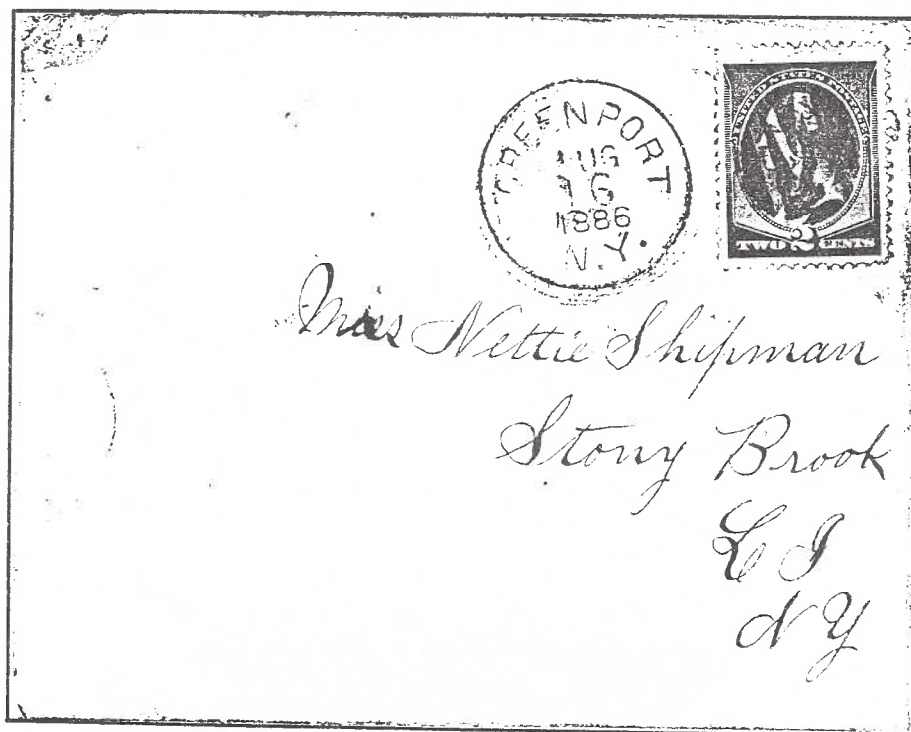 GREENPORT
AUG
16
1886
N.Y.
UNITED STATES POSTAGE
TWO 2 CENTS
Miss Nettie Shipman
Stony Brook
L I
N Y